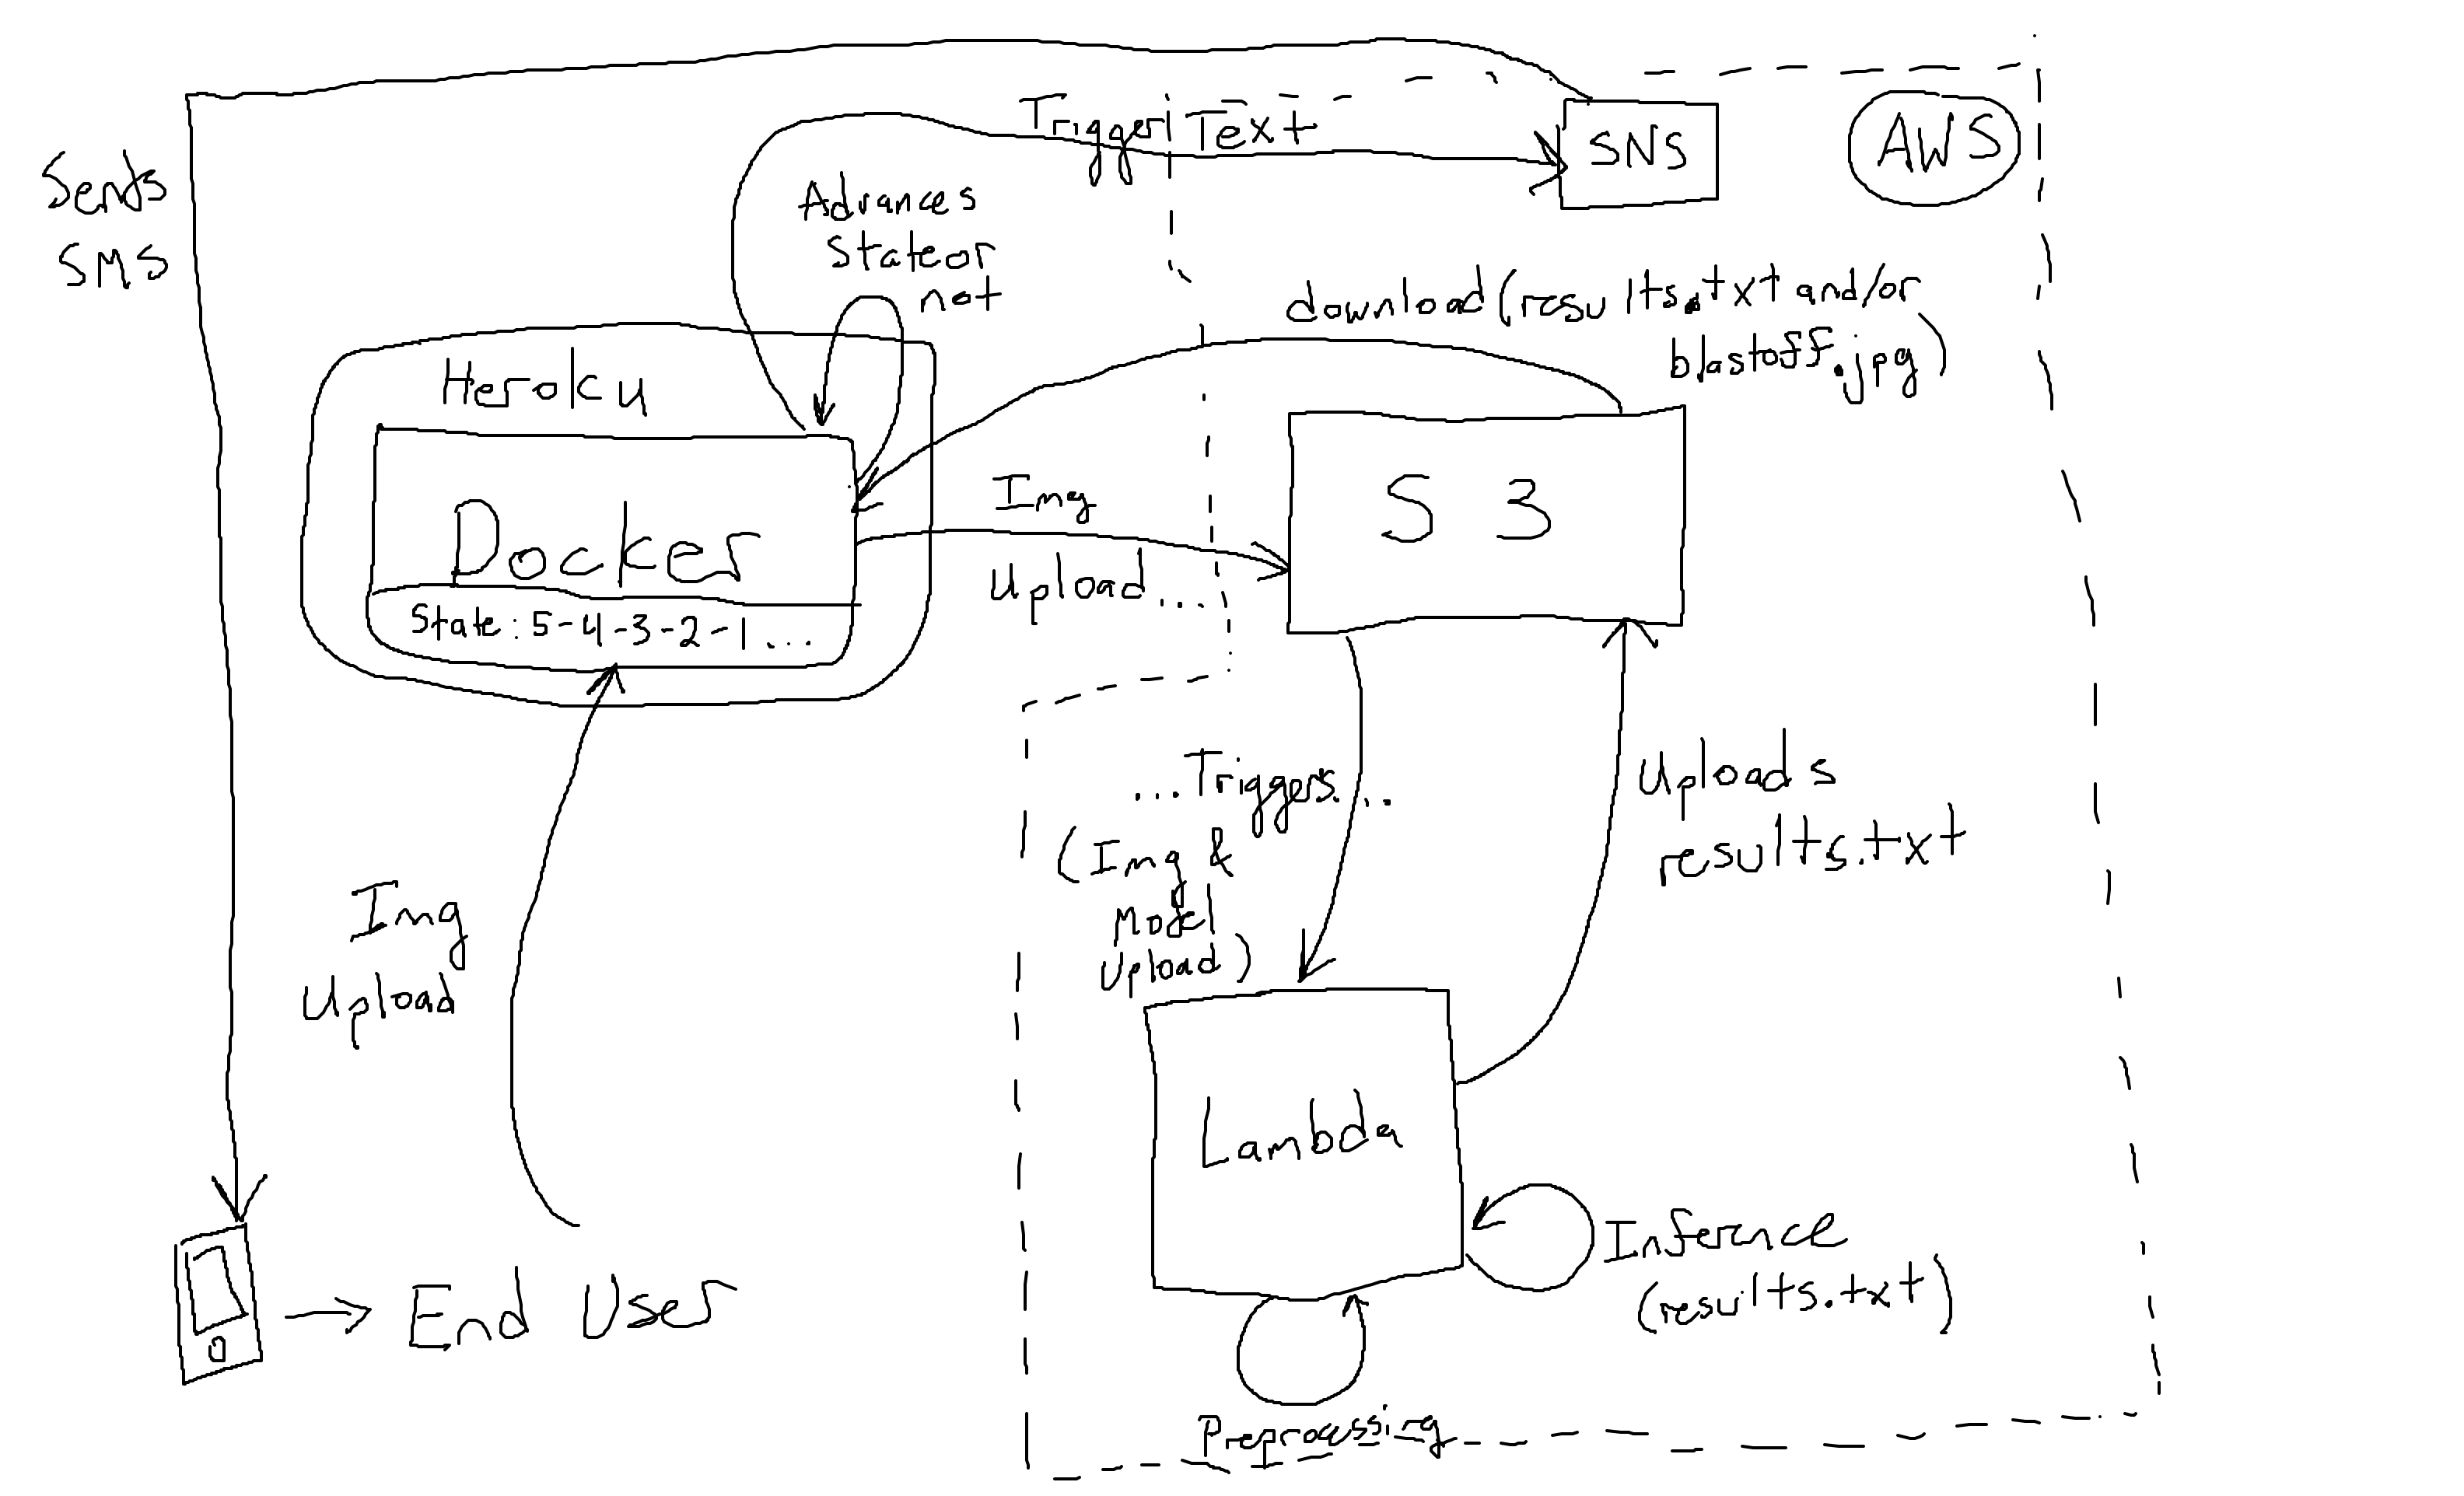 Trigger Text
SNS
AWS
Sends
SMS
Advances
State or
not
download(results.txt and/or
blastoff.jpg)
Heroku
Docker
State: 5-4-3-2-1...
Img
Upload...
S3
...Triggers...
(Img &
Model
Upload)
Uploads
results.txt
Img
Upload
Lambda
Inference
(results.txt)
End User
Preprocessing